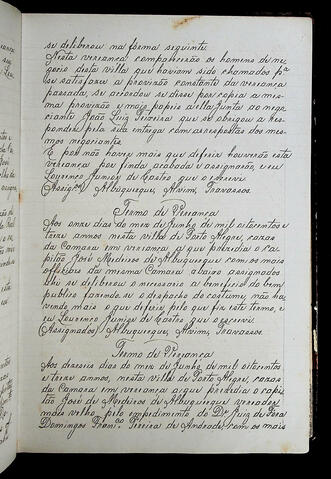 se deliberou na forma seguinte.
Nesta vereança comparecerão os homens de ne-
gocio desta villa que haviam sido chamados pª
se satisfazer a provizão constante da vereança
passada, se accordou se disse por copia a mes-
ma provizão e mais papeis a ella junta ao nego-
ciante João Luiz Teixeira que se obrigou a res-
ponder pela sita entrega com as respostas dos mes-
mos negociantes.
E por não haver mais que deferir houverão esta
vereança por finda acabada e assignarão, e eu
Lourenço Junior de Castro que o escrevi
(Assig.os) Albuquerque, Alvim, Travassos.
Termo de Vereança
Aos onze dias do mez de Junho de mil oitocentos e
treze annos nesta villa de Porto Alegre, cazas
da Camara em vereança a que prezidia o ca-
pitão José Medeiros de Albuquerque com os mais
officiaes da mesma Camara abaixo assignados
ahi se deliberou o necessario a beneficio do bem
publico fazendo-se o despacho do costume, não ha-
vendo mais o que deferir pelo que fiz este Termo, e
eu Lourenço Junior de Castro que o escrevi
(Assignados) Albuquerque, Alvim, Travassos.
Termo de Vereança
Aos dezeseis dias do mez de Junho de mil oitocentos
e treze annos, nesta villa de Porto Alegre, cazas
da Camara em vereança a que prezidia o capi-
tão José de Medeiros de Albuquerque vereador
mais velho pelo empedimento do Dr. Juiz de Fora
Domingos Franc.co Pereira de Andrade, com os mais